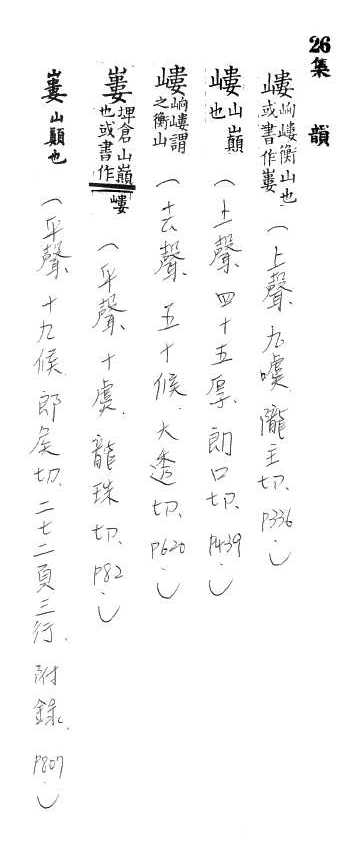 26集韻
嶁岣嶁衡山也或書作嶁（上聲、九噳、隴主切、P336、）
嶁山巔也（上聲、四十五厚、朗口切、P439、）
嶁岣嶁謂之衡山（去聲、五十候、大透切、P620、）
嶁埤倉山巔也或書作嶁（平聲、十虞、龍珠切、P82、）
嶁山顛也（平聲、十九侯、郎侯切、二七二頁三行、附錄、P807、）